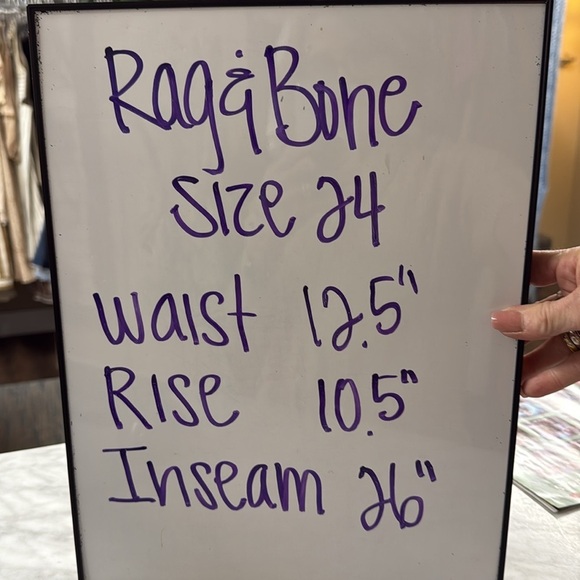 Rag & Bone
Size 24
Waist 12.5"
Rise 10.5"
Inseam 26"